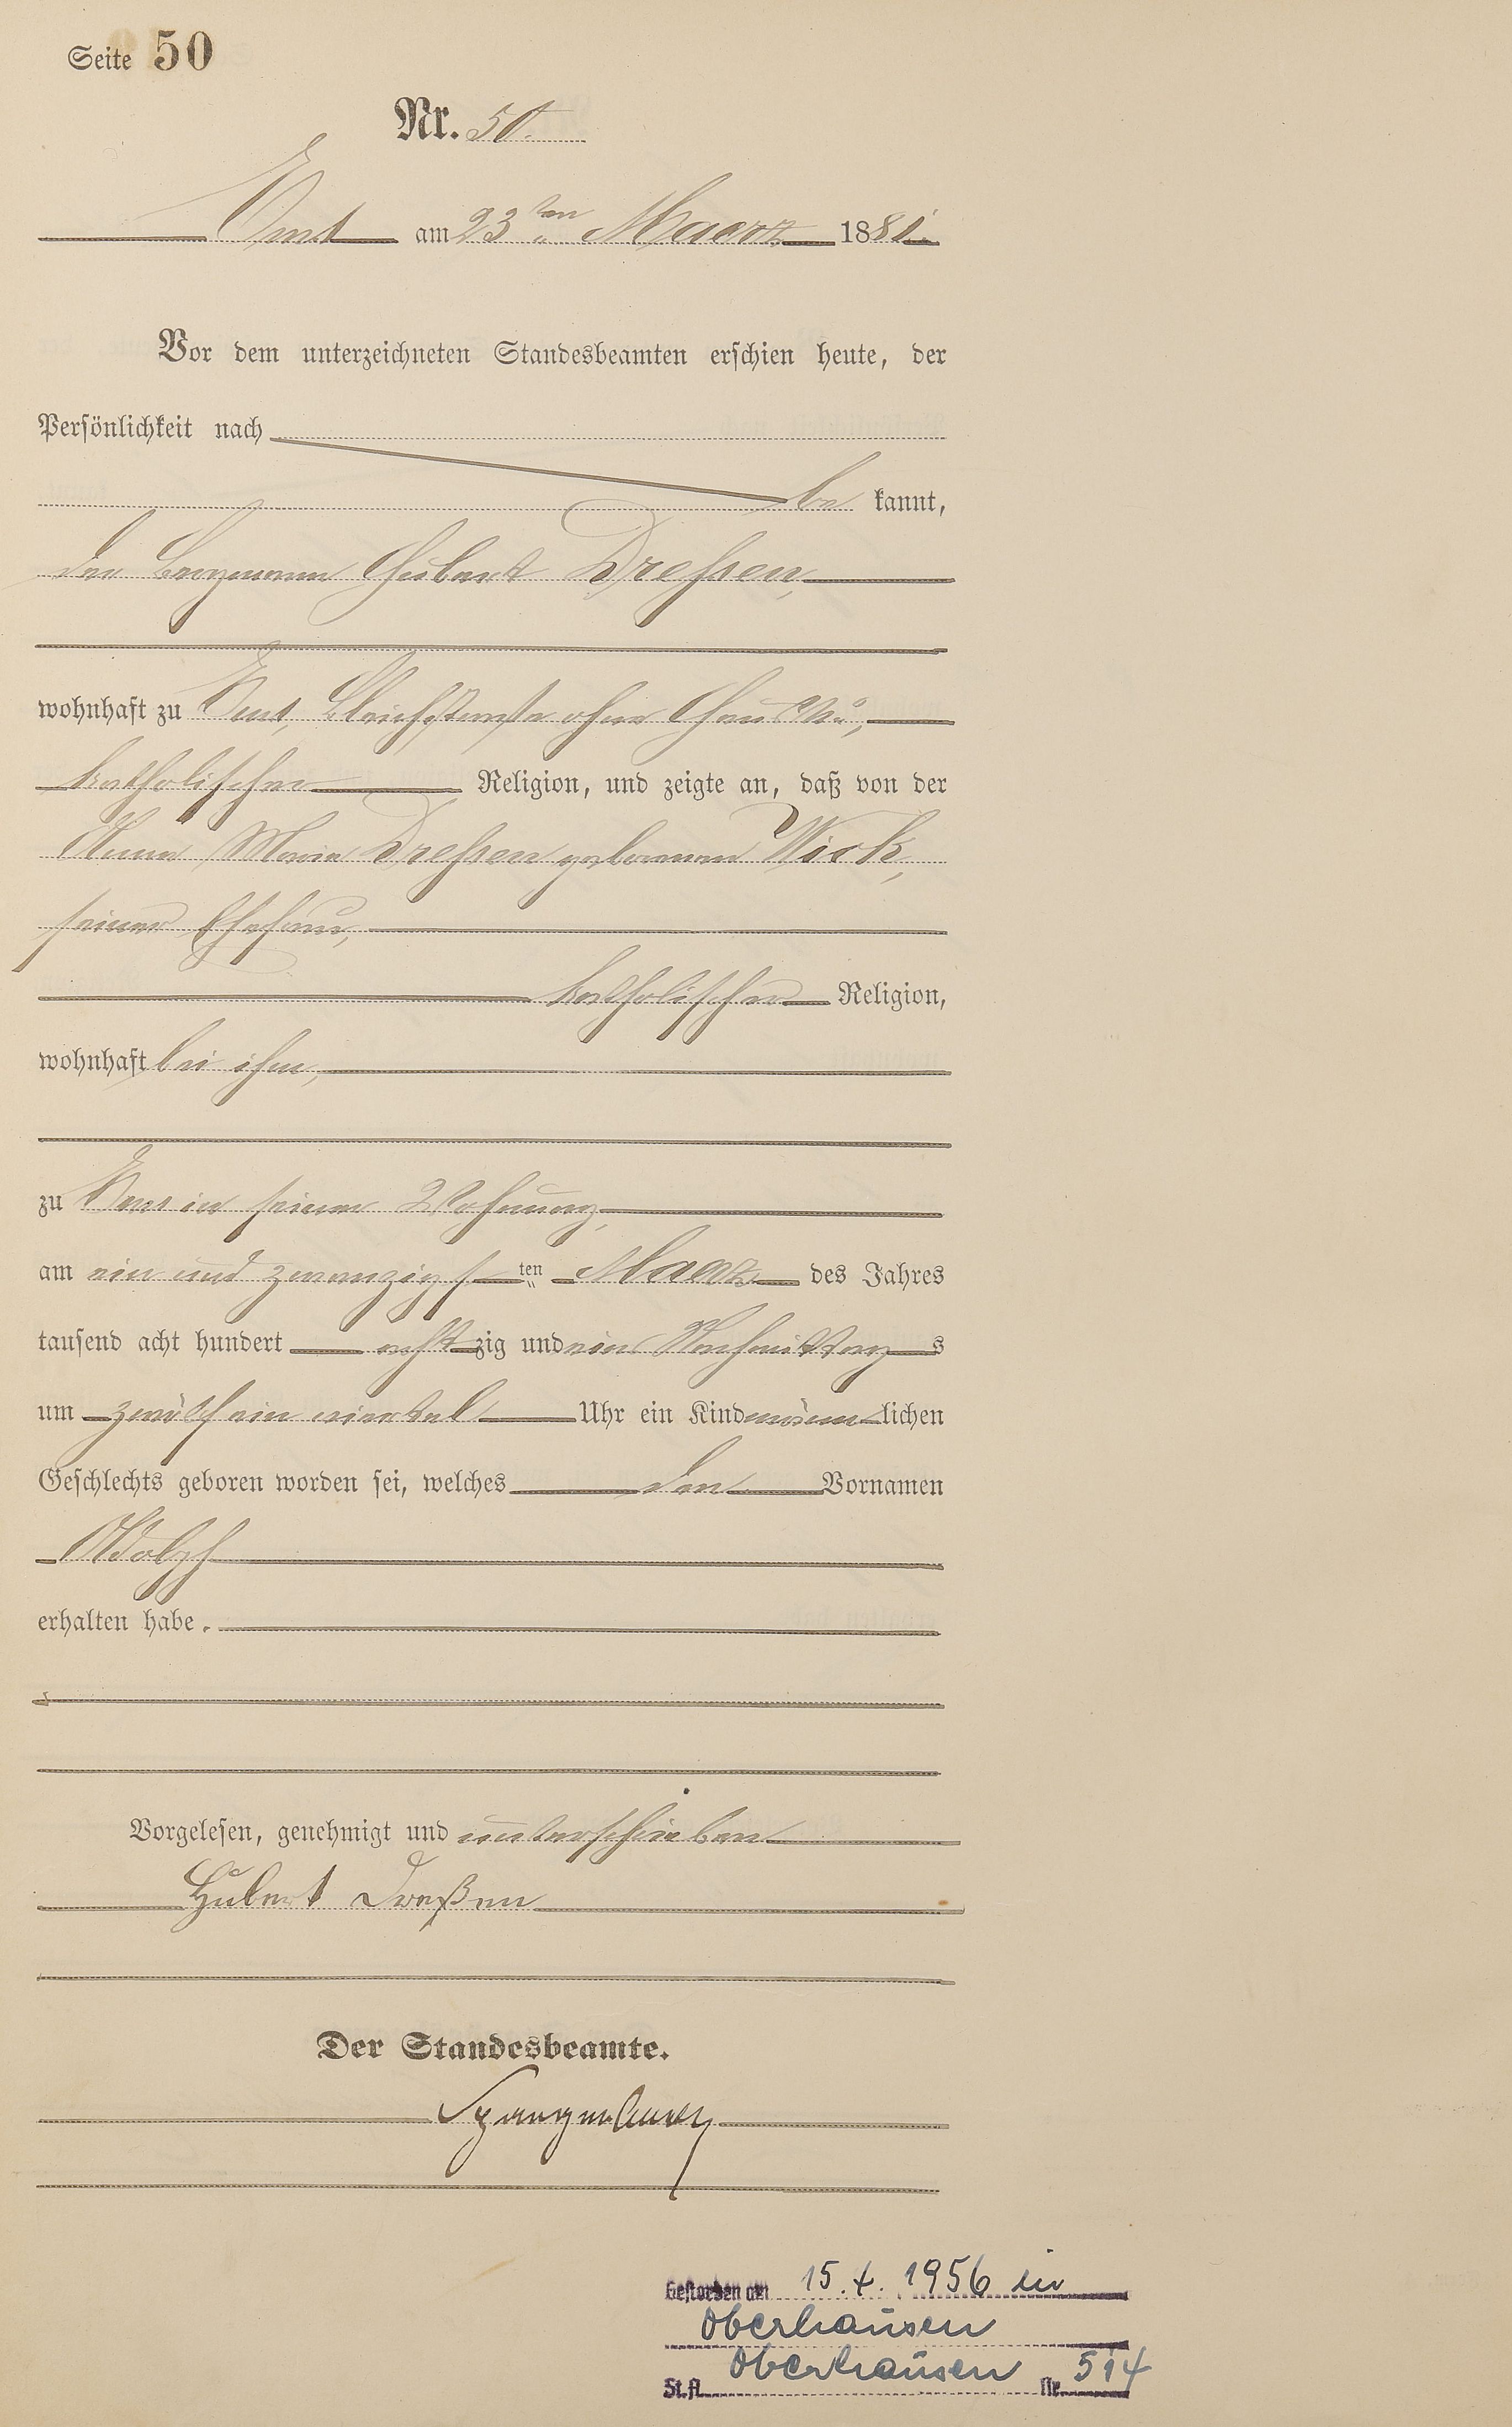 Seite 50
Nr. 50.
Ems am 23ten Maerz 1881.
Vor dem unterzeichneten Standesbeamten erschien heute, der
Persönlichkeit nach
be kannt,
der Bergmann Hubert Dreßen,
wohnhaft zu Ems, Bleichstraße ohne Haus No,
katholischer Religion, und zeigte an, daß von der
Anna Maria Dreßen geborenen Wick,
seiner Ehefrau,
katholischer Religion,
wohnhaft bei ihm,
zu Ems in seiner Wohnung
am ein und zwanzigsten Maerz des Jahres
tausend acht hundert achtzig und ein Nachmittags
um zwölf ein viertel Uhr ein Kind männlichen
Geschlechts geboren worden sei, welches den Vornamen
Adolph
erhalten habe.
Vorgelesen, genehmigt und unterschrieben
Hubert Dreßen
Der Standesbeamte.
Gestorben am 15.4.1956 in
Oberhausen
St.A. Oberhausen Nr. 514